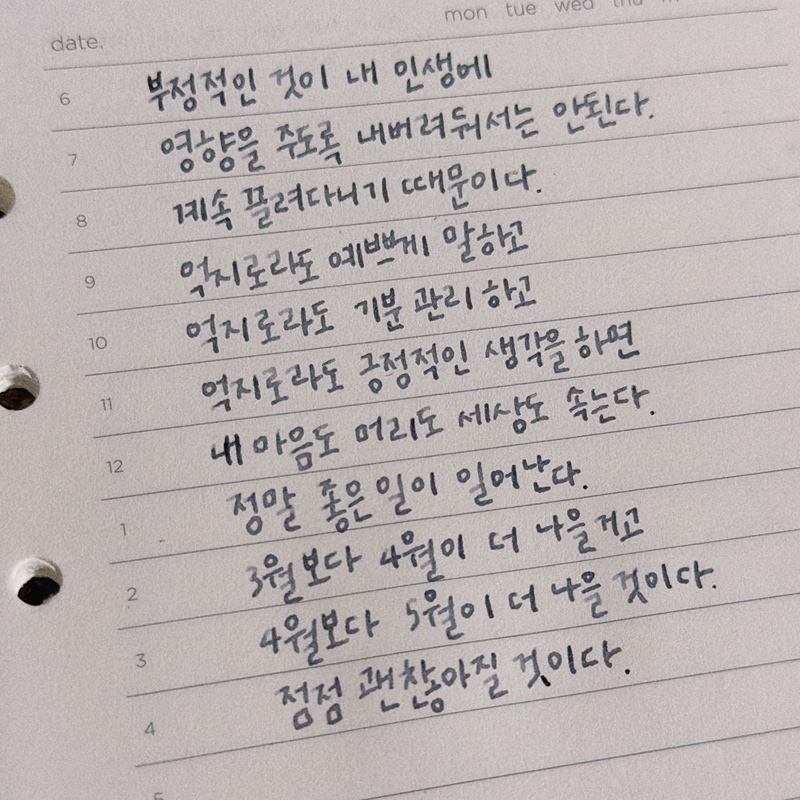 mon tue wed thu
date.
6 부정적인 것이 내 인생에
7 영향을 주도록 내버려둬서는 안된다.
8 계속 끌려다니기 때문이다.
9 억지로라도 예쁘게 말하고
10 억지로라도 기분 관리 하고
11 억지로라도 긍정적인 생각을 하면
12 내 마음도 머리도 세상도 속는다.
1 정말 좋은 일이 일어난다.
2 3월보다 4월이 더 나을거고
3 4월보다 5월이 더 나을 것이다.
4 점점 괜찮아질 것이다.
5